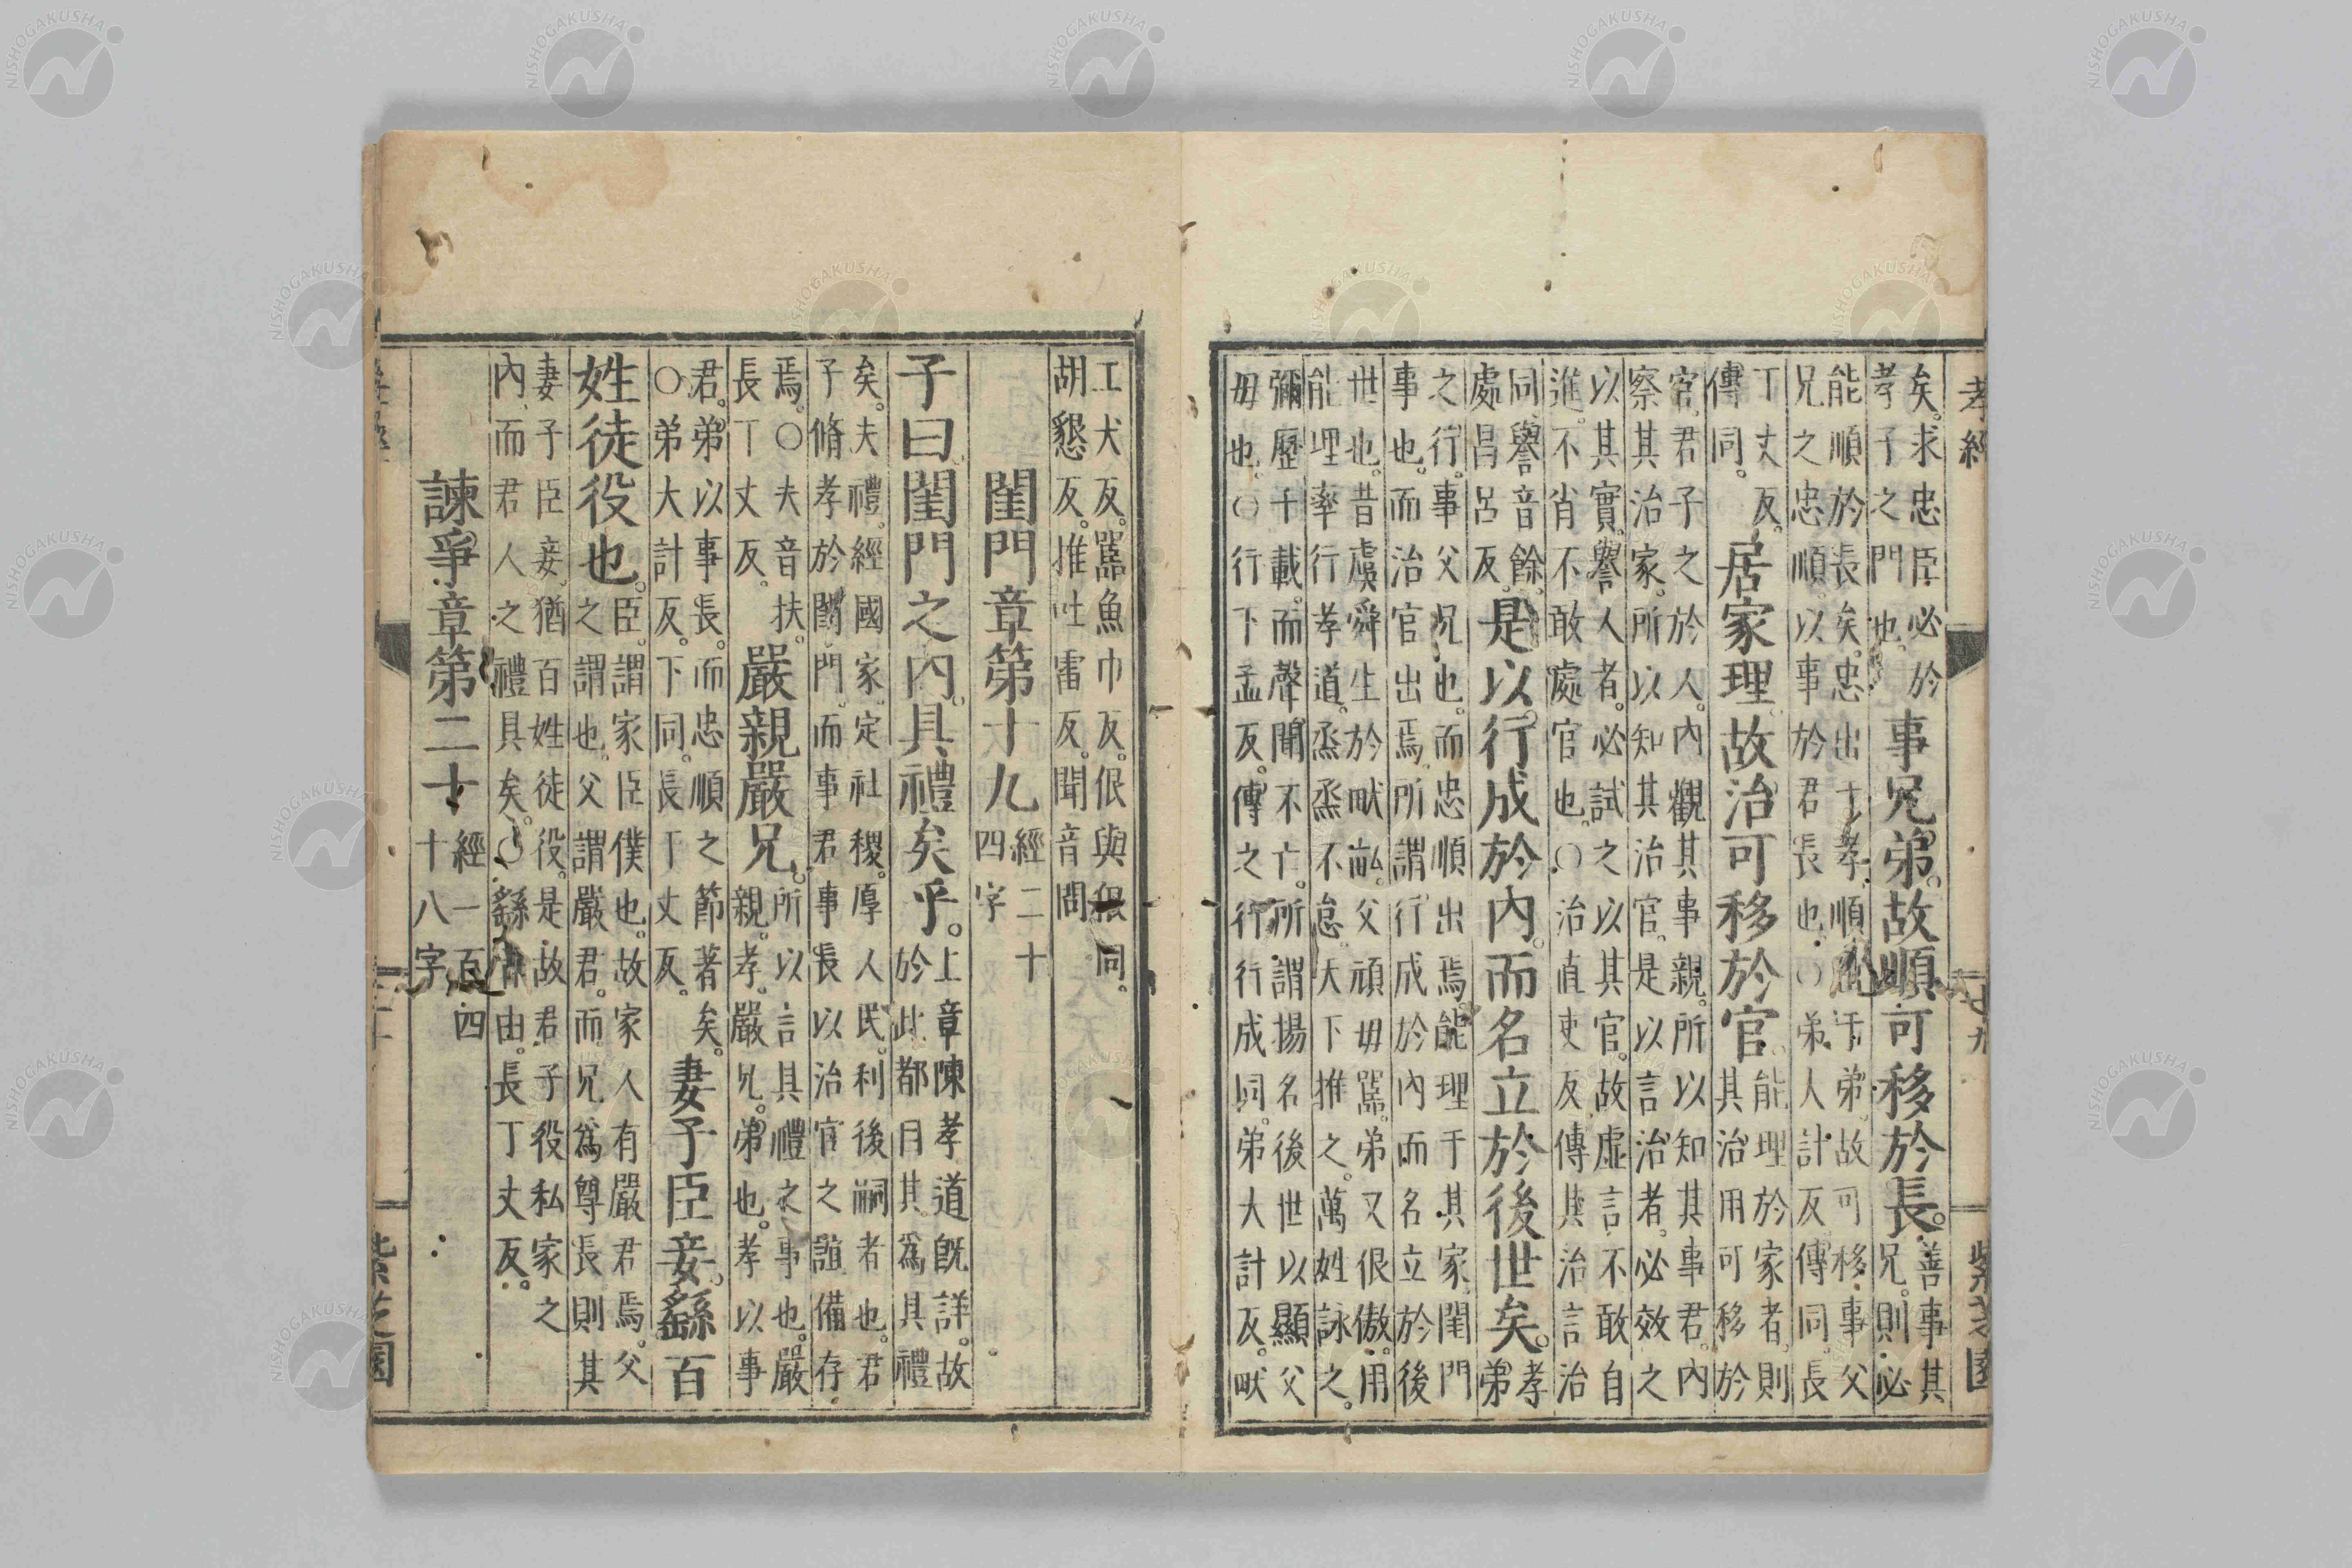 孝經
十九
紫芝園
矣。求忠臣必於
孝子之門也。
事兄弟。故順可移於長。
善事其
兄。則必
能順於長矣。忠出于孝。順出于弟。故可移事父
兄之忠順。以事於君長也。○弟。人計反。傳同。長
丁丈反。
傳同。
居家理。故治可移於官。
能理於家者。則
其治用可移於
官。君子之於人。內觀其事親。所以知其事君。內
察其治家。所以知其治官。是以言治者。必效之
以其實。譽人者。必試之以其官。故虛言不敢自
進。不肖不敢處官也。○治直吏反。傳其治言治
同。譽音餘。
處昌呂反。
是以行成於內。而名立於後世矣。
孝
弟
之行。事父兄也。而忠順出焉。能理于其家閨門
事也。而治官出焉。所謂行成於內而名立於後
世也。昔虞舜生於畎畝。父頑毋嚚。弟又很傲。用
能理率行孝道。烝烝不怠。天下推之。萬姓詠之。
彌歷千載。而聲聞不亡。所謂揚名後世以顯父
毋也。○行下孟反。傳之行行成同。弟大計反。畎
工犬反。嚚魚巾反。佷與很同。
胡懇反。推吐雷反。聞音問。
閨門章第十九
經二十
四字
子曰。閨門之內。具禮矣乎。
上章陳孝道旣詳。故
於此都目其爲具禮
矣。夫禮。經國家。定社稷。厚人民。利後嗣者也。君
子脩孝於閨門。而事君事長以治官之誼備存
焉。○夫音扶。
長丁丈反。
嚴親嚴兄。
所以言具禮之事也。嚴
親。孝。嚴兄。弟也。孝以事
君。弟以事長。而忠順之節著矣。
○弟大計反。下同。長丁丈反。
妻子臣妾。繇百
姓徒役也。
臣。謂家臣僕也。故家人有嚴君焉。父
之謂也。父謂嚴君。而兄爲尊長則其
妻子臣妾。猶百姓徒役。是故君子役私家之
內。而君人之禮具矣。○繇古由。長丁丈反。
諫爭章第二十
經一百四
十八字
紫芝園